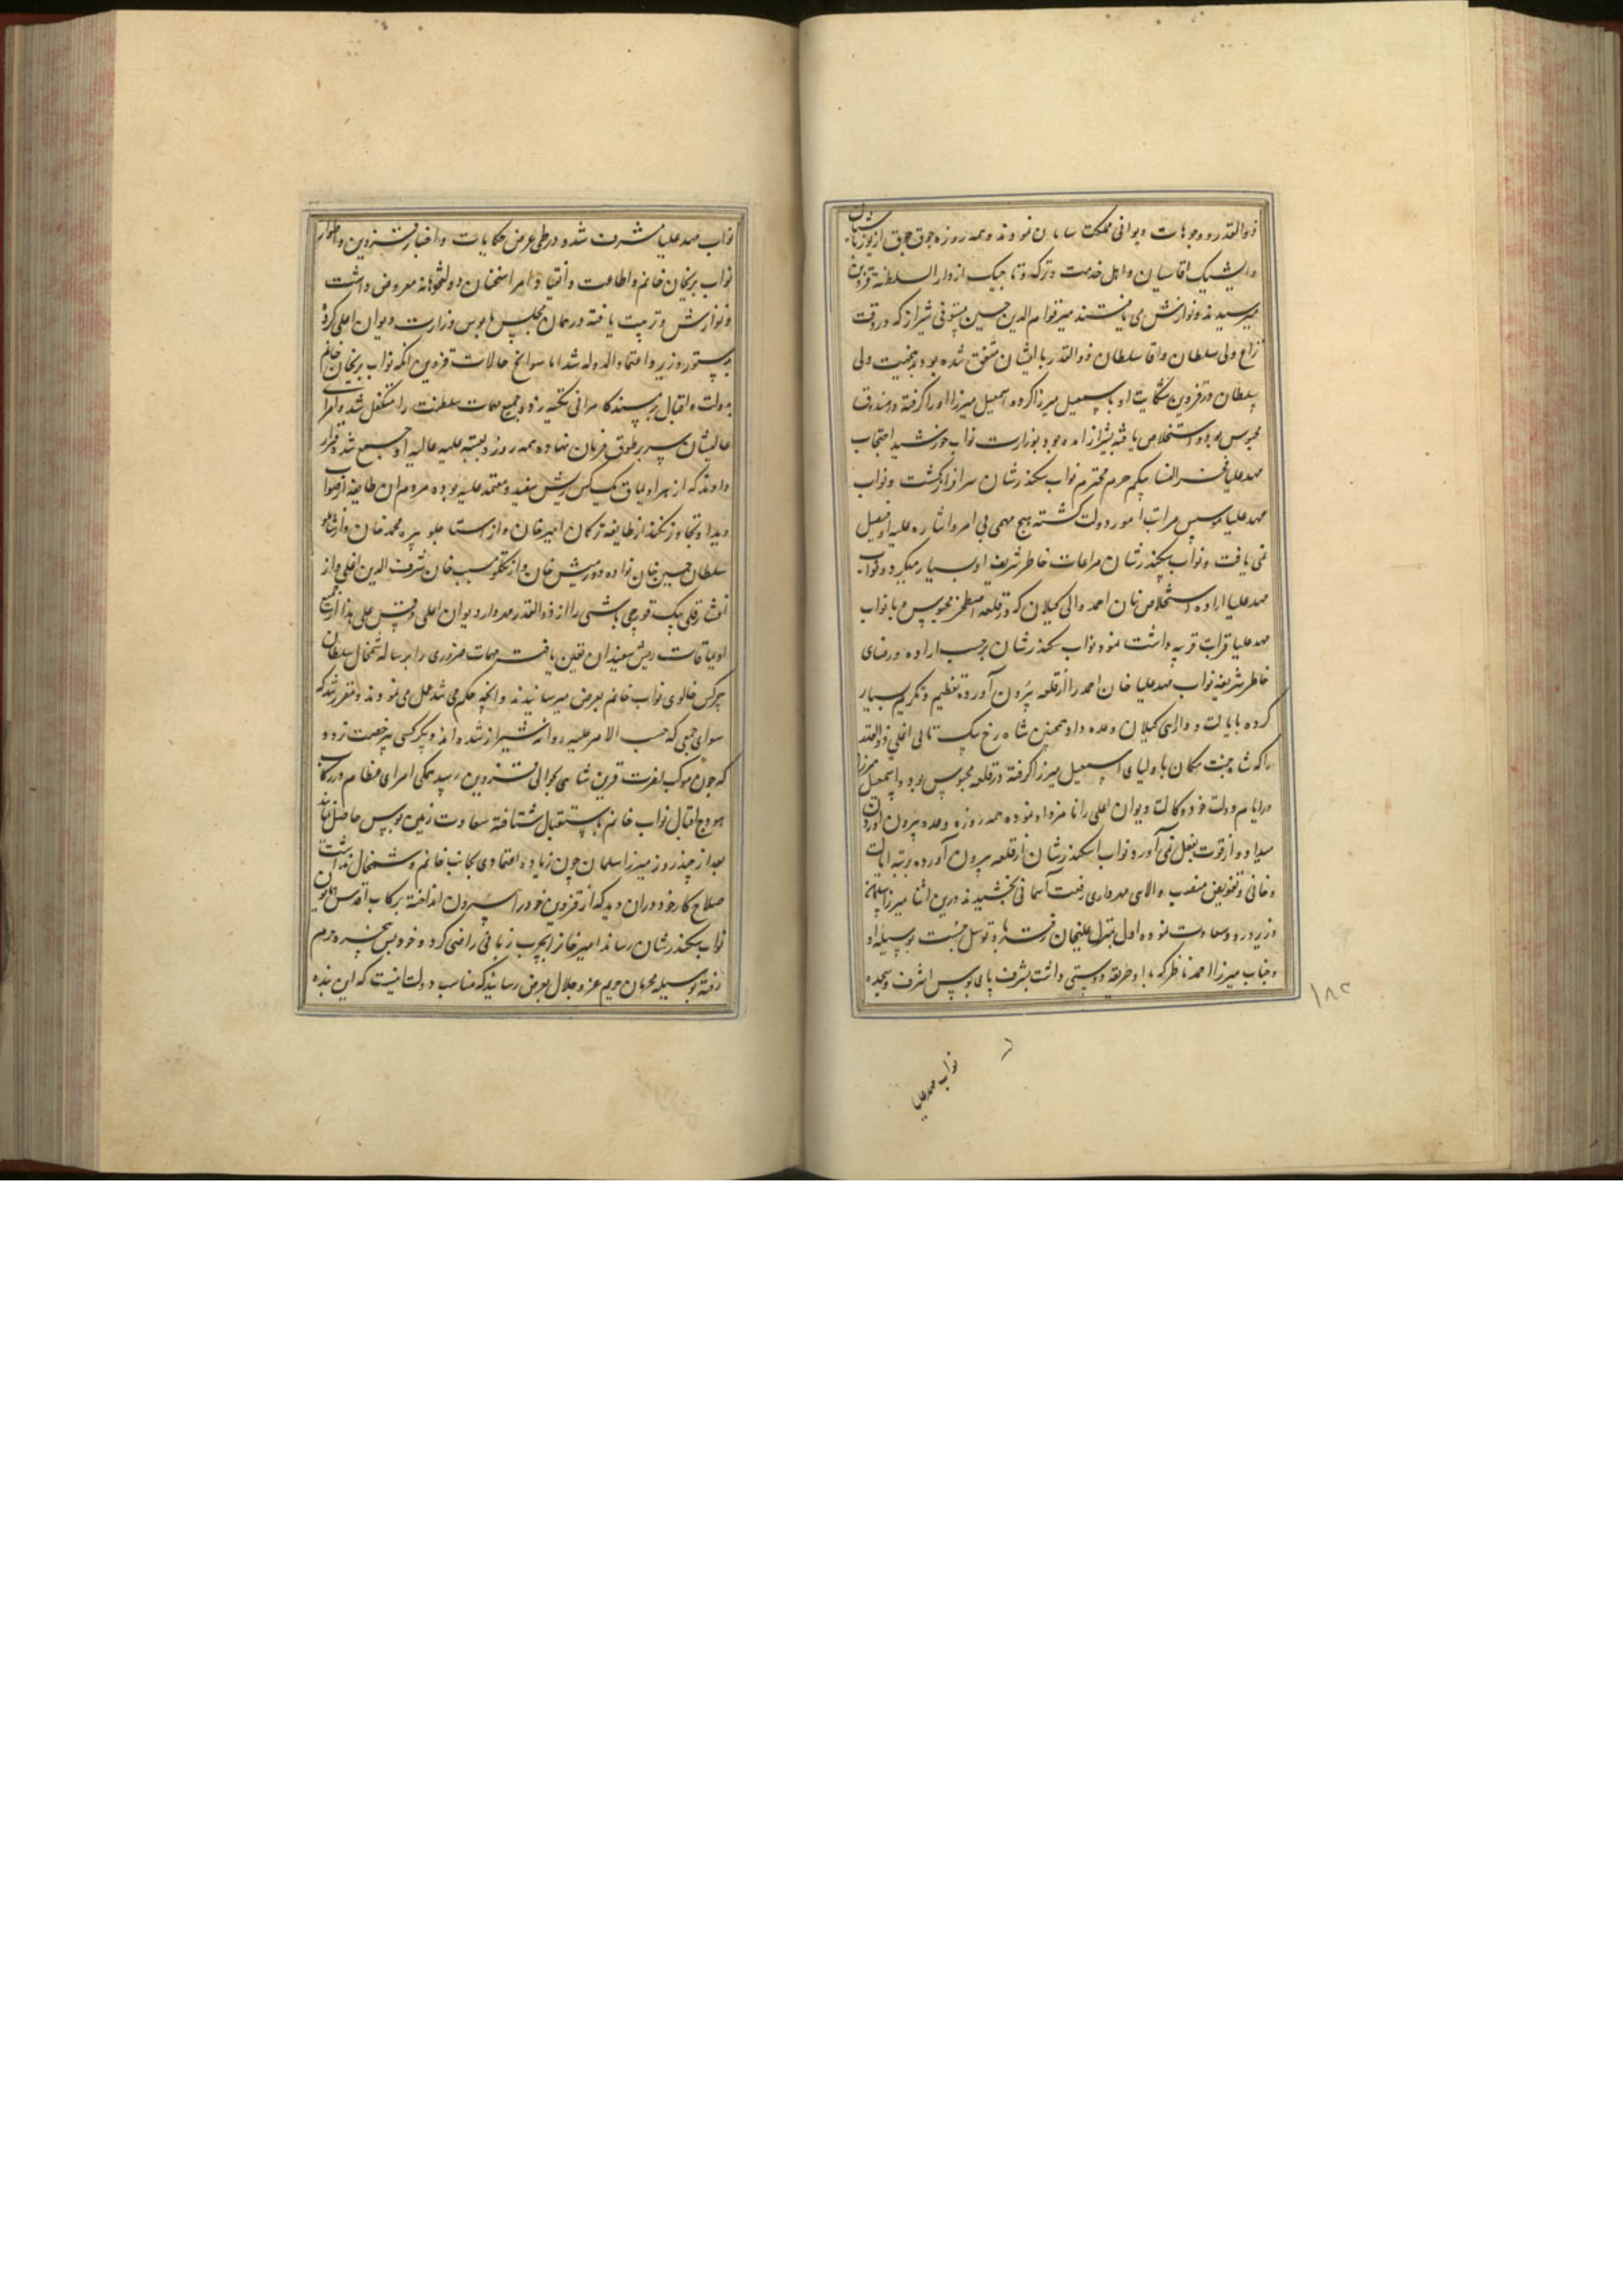 ذوالقدر و وجوهات دیوانی مملکت سامان نمودند و همه روزه جوق جوق از یوزباشیان
و ایشیک اقاسیان و اهل خدمت و ترک و تاجیک از دار السلطنه قزوین
میرسیدند و نوازش می یافتند میر قوام الدین حسین مستوفی شیراز که در وقت
نزاع ولی سلطان و اقا سلطان ذوالقدر با ایشان متفق شده بود بدین جهت ولی
سلطان در قزوین شکایت او با سمعیل میرزا کرده اسمعیل میرزا او را گرفته در
محبوس بود و استخلاص یافته بشیراز امده بود بوزارت نواب خورشید احتجاب
مهد علیا فخر النسا بیکم حرم محترم نواب سکندر شان سرافراز گشت و نواب
مهد علیا موسس مراتب امور دولت گشته هیچ مهمی بی امر و اشاره علیه او فیصل
نمی یافت و نواب سکندر شان مراعات خاطر شریف او بسیار میکرد و نواب
مهد علیا اراده استخلاص خان احمد والی کیلان که در قلعه اصطخر محبوس و با نواب
مهد علیا قرابت قریبه داشت نمود نواب سکندر شان بر حسب اراده و رضای
خاطر شریف نواب مهد علیا خان احمد را از قلعه بیرون آورده تعظیم و تکریم بسیار
کرده بایالت و دارائی کیلان وعده داد همچنین شاه رخ بیک تاتی اغلی ذوالقدر
را که شاه جنت مکان با ولیای اسمعیل میرزا گرفته در قلعه محبوس بود و اسمعیل میرزا
در ایام دولت خود وکالت دیوان اعلی را نامزد او نموده همه روزه وعده بیرون آوردن
میداد و از قوت بفعل نمی آورد نواب اسکندر شان از قلعه بیرون آورده برتبه ایالت
و خانی و تفویض منصب والای مهرداری رفعت آسمانی بخشیدند درین اثنا میرزا سلمان
وزیر ورود سعادت نموده اول بمنزل علیخان رفته باو توسل جست بوسیله او
و جناب میرزا احمد ناظر که با او طریقه دوستی داشت بشرف پای بوس اشرف و سجده
۱۸۲
نواب مهد علیا
نواب مهد علیا مشرف شد و در طی عرض حکایات و اخبار قزوین و اطوار
نواب پریخان خانم و اطاعت و انقیاد امرا سخنان دولتخواهانه معروض داشت
و نوازش و تربیت یافته در همان مجلس پابوس وزارت دیوان اعلی کرد
بدستور وزیر و اعتماد الدوله شد اما سوانح حالات قزوین انکه نواب پریخان خانم
بدولت و اقبال بر مسند کامرانی تکیه زد و جمیع مهمات سلطنت را متکفل شد و امرای
عالیشان سر بر طوق فرمان نهاده همه روزه بعتبه علیه عالیه او جمع شد و قرار
دادند که از هر اویماق یک کس ریش سفید و معتمد علیه بوده مردم ان طایفه از صواب
دید او تجاوز نکنند از طایفه ترکمان امیر خان و از استاجلو پیره محمد خان و از شاملو
سلطان حسین خان نواده دورمیش خان و از تکلو مسیب خان شرف الدین اغلی و از
افشار قلی بیک قورچی باشی را از ذوالقدر مهردار دیوان اعلی وقس علی هذا از جمیع
اویماقات ریش سفیدان تعین یافت مهمات ضروری را برساله شمخال سلطان
چرکس خالوی نواب خانم بعرض میرسانیدند و انچه حکم می شد عمل می نمودند و مقرر شد که
سوای جمعی که حسب الامر علیه روانه شیراز شده اند دیگر کسی بیرخصت نرود
که چون موکب نصرت قرین شاهی بحوالی قزوین رسید همگی امرای عظام در رکاب
هودج اقبال نواب خانم باستقبال شتافته سعادت زمین بوس حاصل نمایند
بعد از چند روز میرزا سلمان چون زیاده اعتمادی بجانب خانم و شمخال نداشت
صلاح کار خود در ان دید که از قزوین خود را بیرون انداخته برکاب اقدس همایون
نواب سکندر شان رساند امیر خانرا بچرب زبانی راضی کرد و خود پس پنجره حرم
رفته بوسیله محرمان حریم عز و جلال بعرض رسانید که مناسب دولت انیست که این بنده